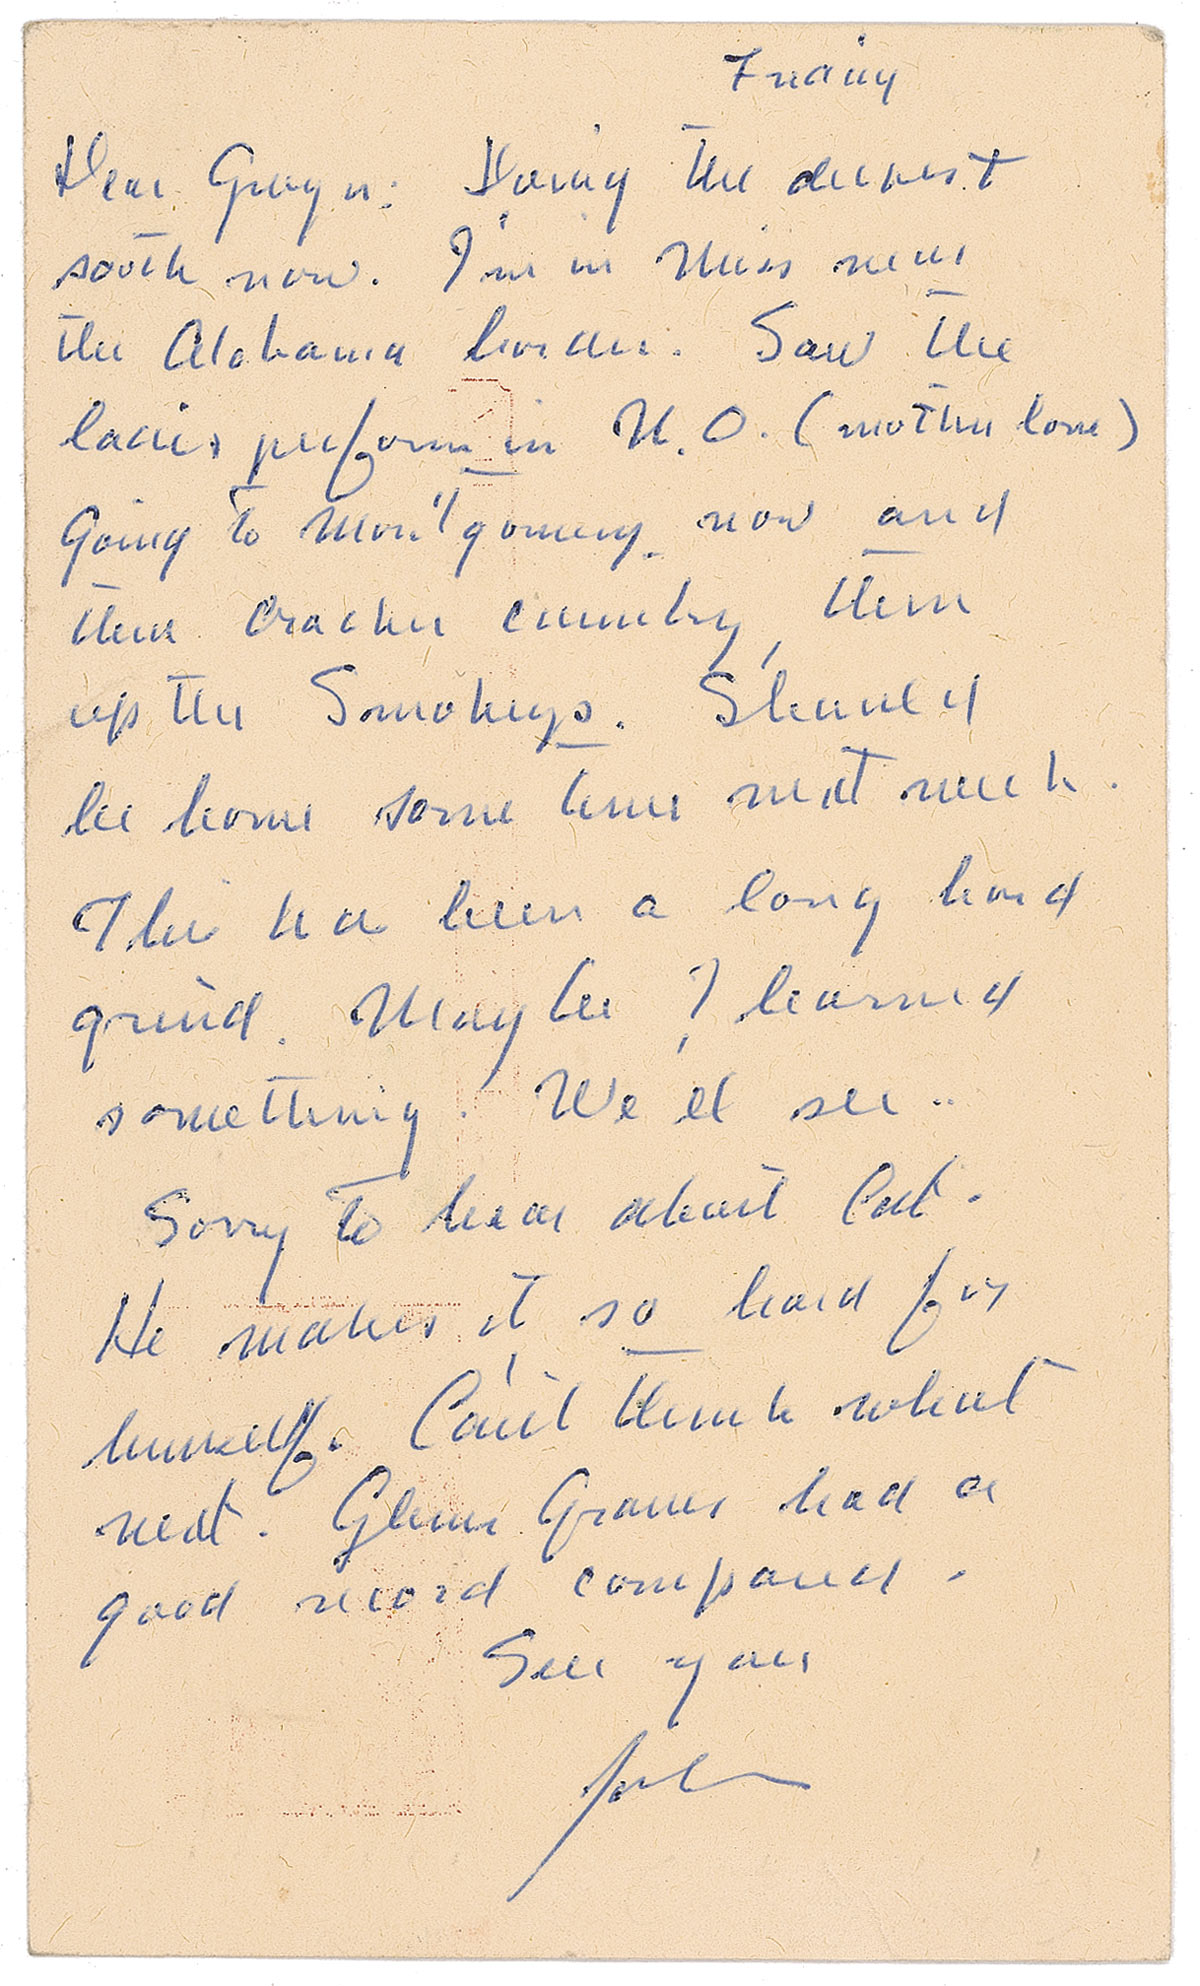 Friday
Dear Gwyn: Doing the deepest
south now. I'm in Miss near
the Alabama border. Saw the
ladies perform in N.O. (mother love)
Going to Montgomery now and
then cracker country, then
up the Smokeys. Should
be home some time next week.
This has been a long hard
grind. Maybe I learned
something. We'll see..
Sorry to hear about Cat.
He makes it so hard for
himself. Can't think what
next. Glenn Graves had a
good record compared.
See you
John